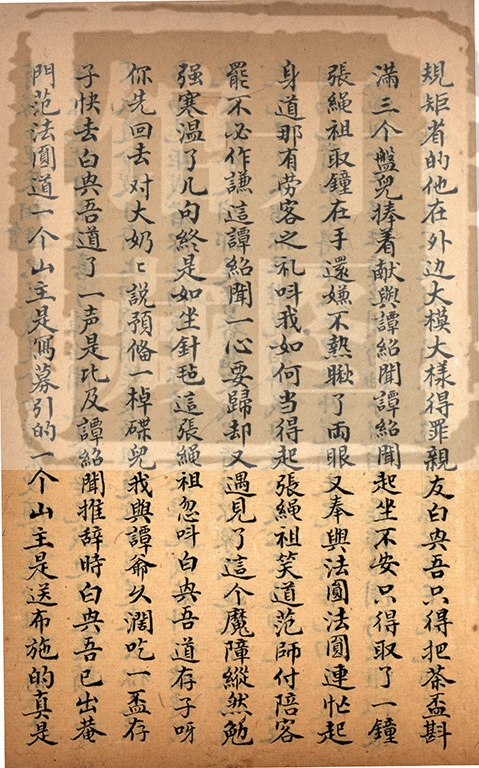 規矩省的他在外边大模大樣得罪親友白典吾只得把茶盃斟
滿三个盤兒捧着献與譚紹聞譚紹聞起坐不安只得取了一鐘
張繩祖取鐘在手還嫌不熱瞅了両眼又奉與法圓法圓連忙起
身道那有劳客之礼呌我如何当得起張繩祖笑道范師付陪客
罷不必作謙這譚紹聞一心要歸却又遇見了這个魔障縱然勉
强寒温了几句終是如坐針毡這張繩祖忽呌白典吾道存子呀
你先回去对大奶〻說預俻一棹碟兒我與譚爺久濶吃一盃存
子快去白典吾道了一声是比及譚紹聞推辞時白典吾已出菴
門范法圓道一个山主是寫募引的一个山主是送布施的真是